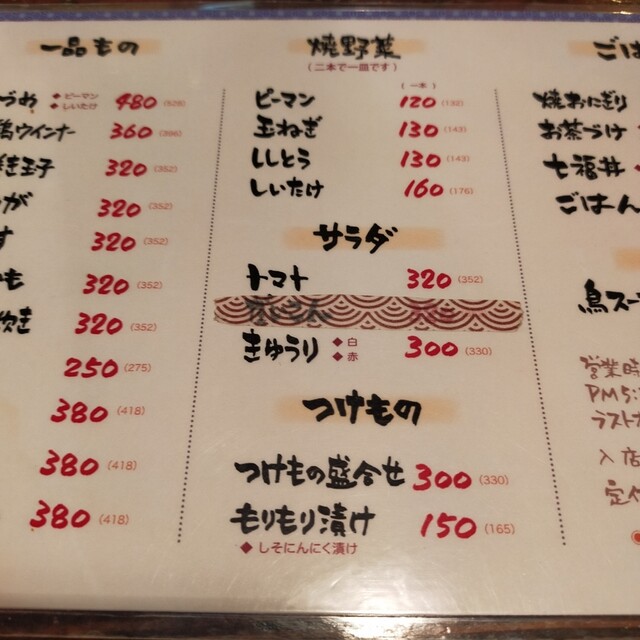 一品もの
づめ ◆ピーマン ◆しいたけ 480 (528)
鶏ウインナー 360 (396)
き玉子 320 (352)
が 320 (352)
す 320 (352)
も 320 (352)
炊き 320 (352)
250 (275)
380 (418)
380 (418)
380 (418)
焼野菜
(二本で一皿です)
(一本)
ピーマン 120 (132)
玉ねぎ 130 (143)
ししとう 130 (143)
しいたけ 160 (176)
サラダ
トマト 320 (352)
きゅうり ◆白 ◆赤 300 (330)
つけもの
つけもの盛合せ 300 (330)
もりもり漬け 150 (165)
◆しそにんにく漬け
ごは
焼おにぎり
お茶づけ
七福丼
ごはん
鳥スー
営業時
PM5:
ラスト
入店
定休